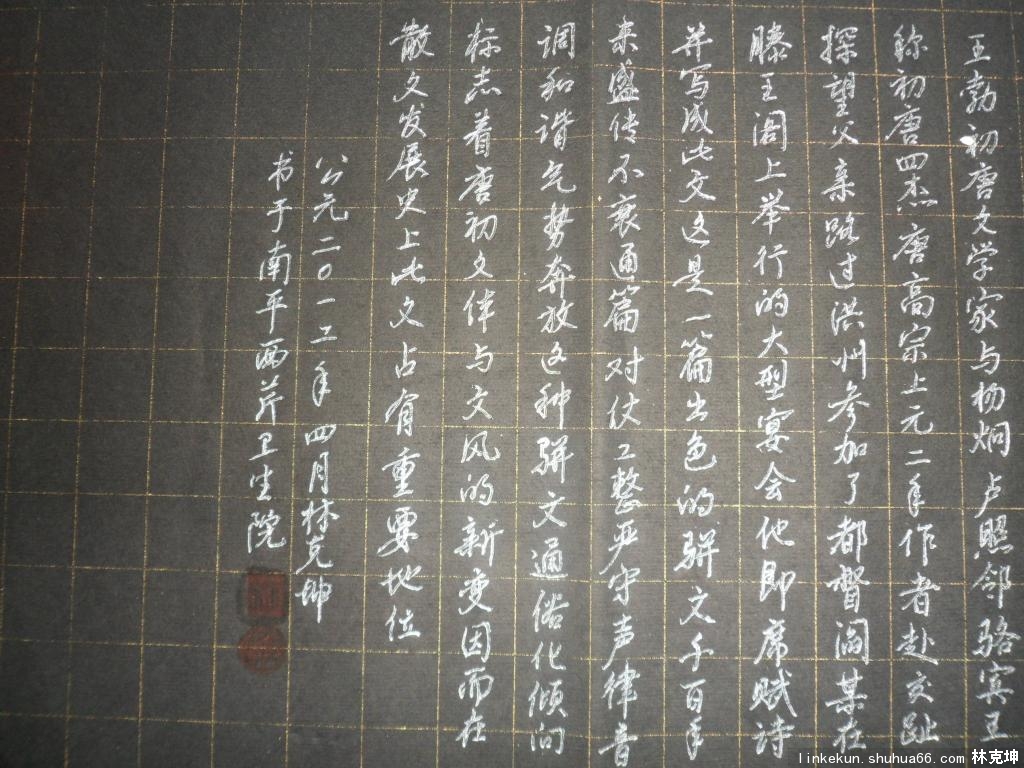 王勃初唐文学家与杨炯卢照邻骆宾王
称初唐四杰唐高宗上元二年作者赴交趾
探望父亲路过洪州参加了都督阎某在
滕王阁上举行的大型宴会他即席赋诗
并写成此文这是一篇出色的骈文千百年
来盛传不衰通篇对仗工整严守声律音
调和谐气势奔放这种骈文通俗化倾向
标志着唐初文体与文风的新变因而在
散文发展史上此文占有重要地位
公元二〇一二年四月林克坤
书于南平西芹卫生院
linkekun.shuhua66.com 林克坤